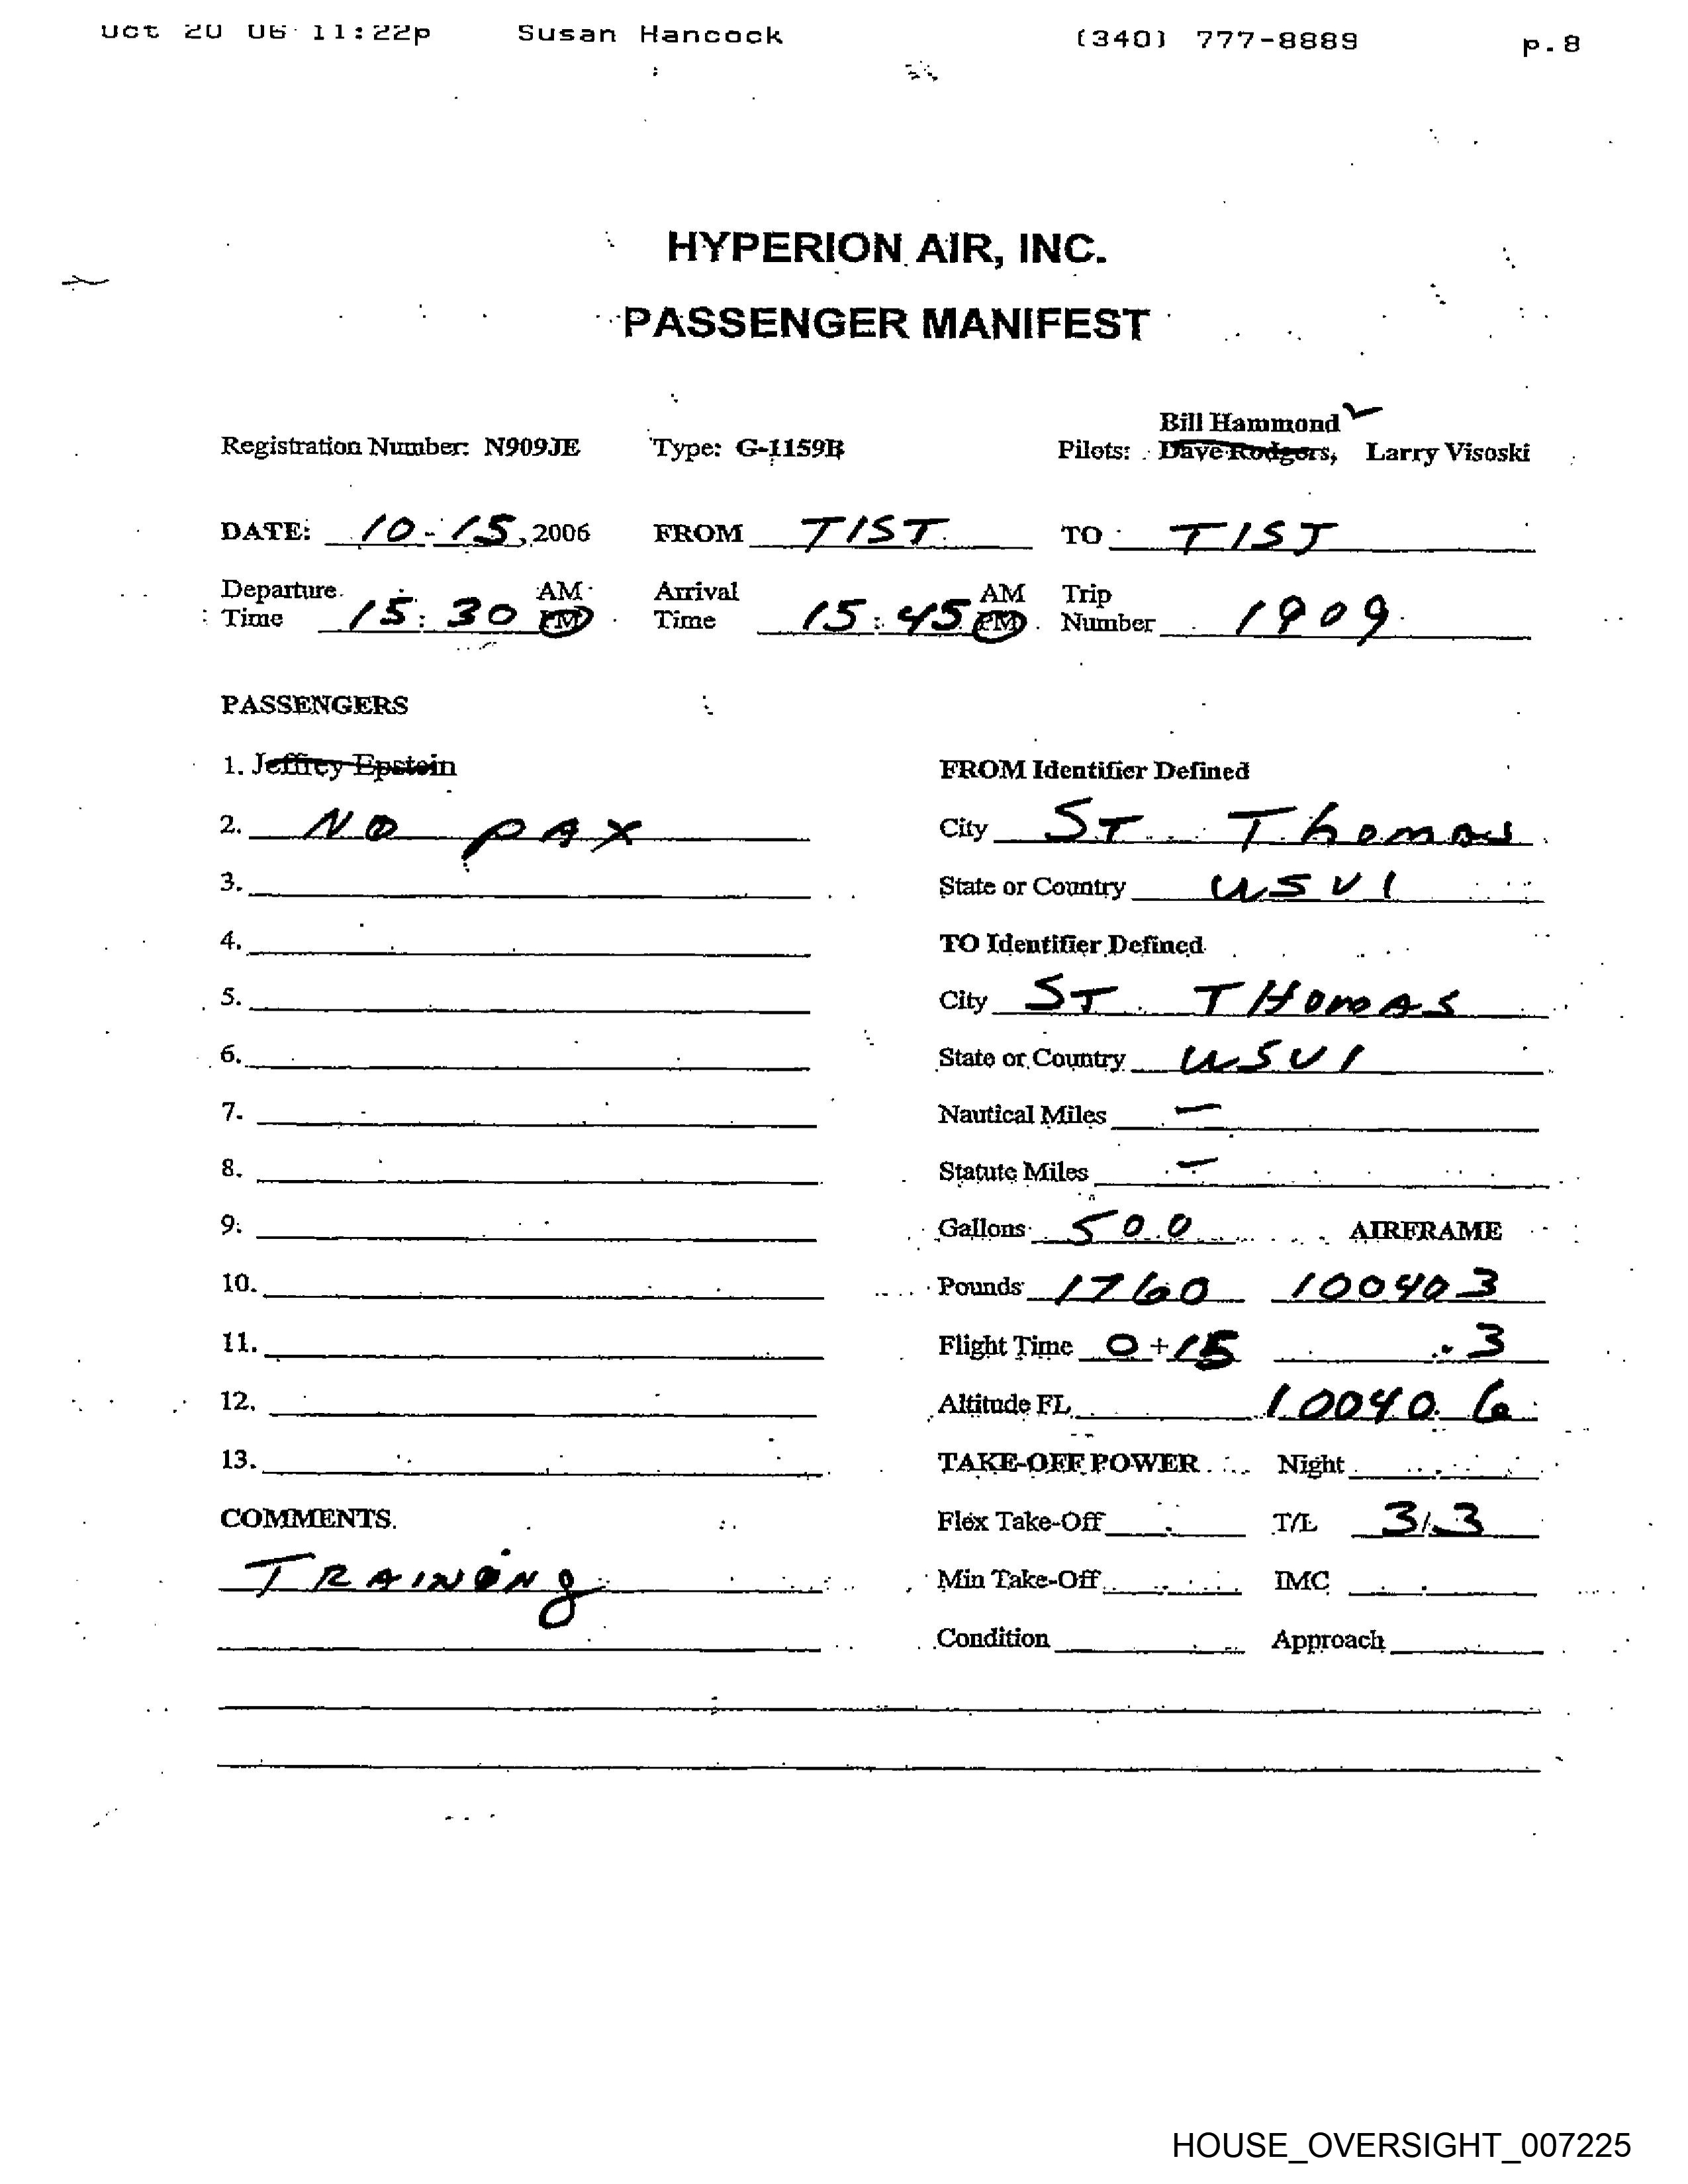 Oct 20 06 11:22p Susan Hancock (340) 777-8889 p.8
HYPERION AIR, INC.
PASSENGER MANIFEST
Bill Hammond
Registration Number: N909JE Type: G-1159B Pilots: Dave Rodgers, Larry Visoski
DATE: 10-15, 2006 FROM TIST TO TIST
Departure AM Arrival AM Trip
Time 15:30 PM Time 15:45 PM Number 1909
PASSENGERS
1. Jeffrey Epstein FROM Identifier Defined
2. NO PAX City ST Thomas
3. State or Country USVI
4. TO Identifier Defined
5. City ST THOMAS
6. State or Country USVI
7. Nautical Miles —
8. Statute Miles —
9. Gallons 500 AIRFRAME
10. Pounds 1760 10040 3
11. Flight Time 0+15 .3
12. Altitude FL 10040.6
13. TAKE-OFF POWER Night
COMMENTS Flex Take-Off T/L 3/3
TRAINING Min Take-Off IMC
Condition Approach
HOUSE_OVERSIGHT_007225